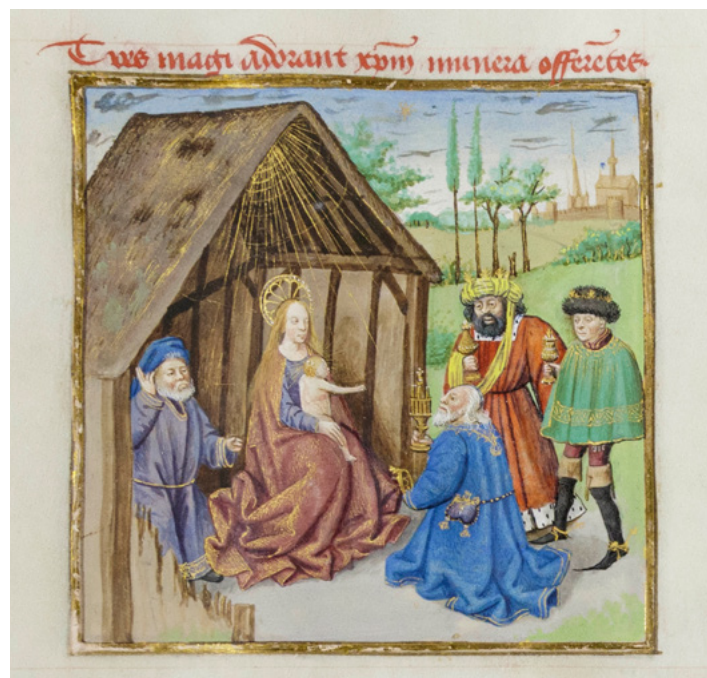 Tres magi adorant xpm̄ munera offerētes.